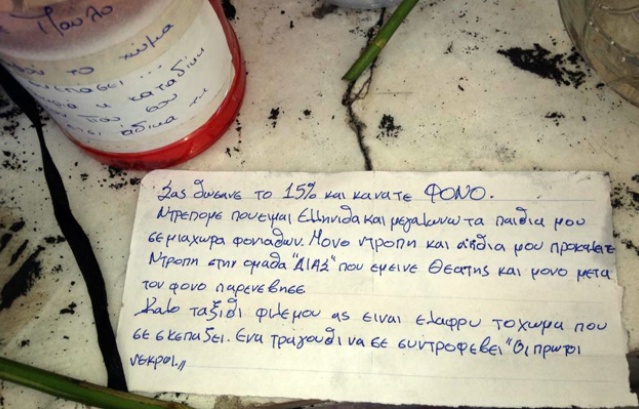 Παυλο
το χωμα
σκεπασει...
καταδικη
που σου
αδικα τη
Σας δωσανε το 15% και κανατε ΦΟΝΟ.
Ντρεπομε που ειμαι Ελληνιδα και μεγαλωνω τα παιδια μου
σε μια χωρα φοναδων. Μονο ντροπη και αηδια μου προκαλειτε
Ντροπη στην ομαδα "ΔΙΑΣ" που εμεινε Θεατης και μονο μετα
τον φονο παρενεβησε
Καλο ταξιδι φιλε μου ας ειναι ελαφρυ το χωμα που
σε σκεπαζει. Ενα τραγουδι να σε συντροφεβει "Οι πρωτοι
νεκροι,,